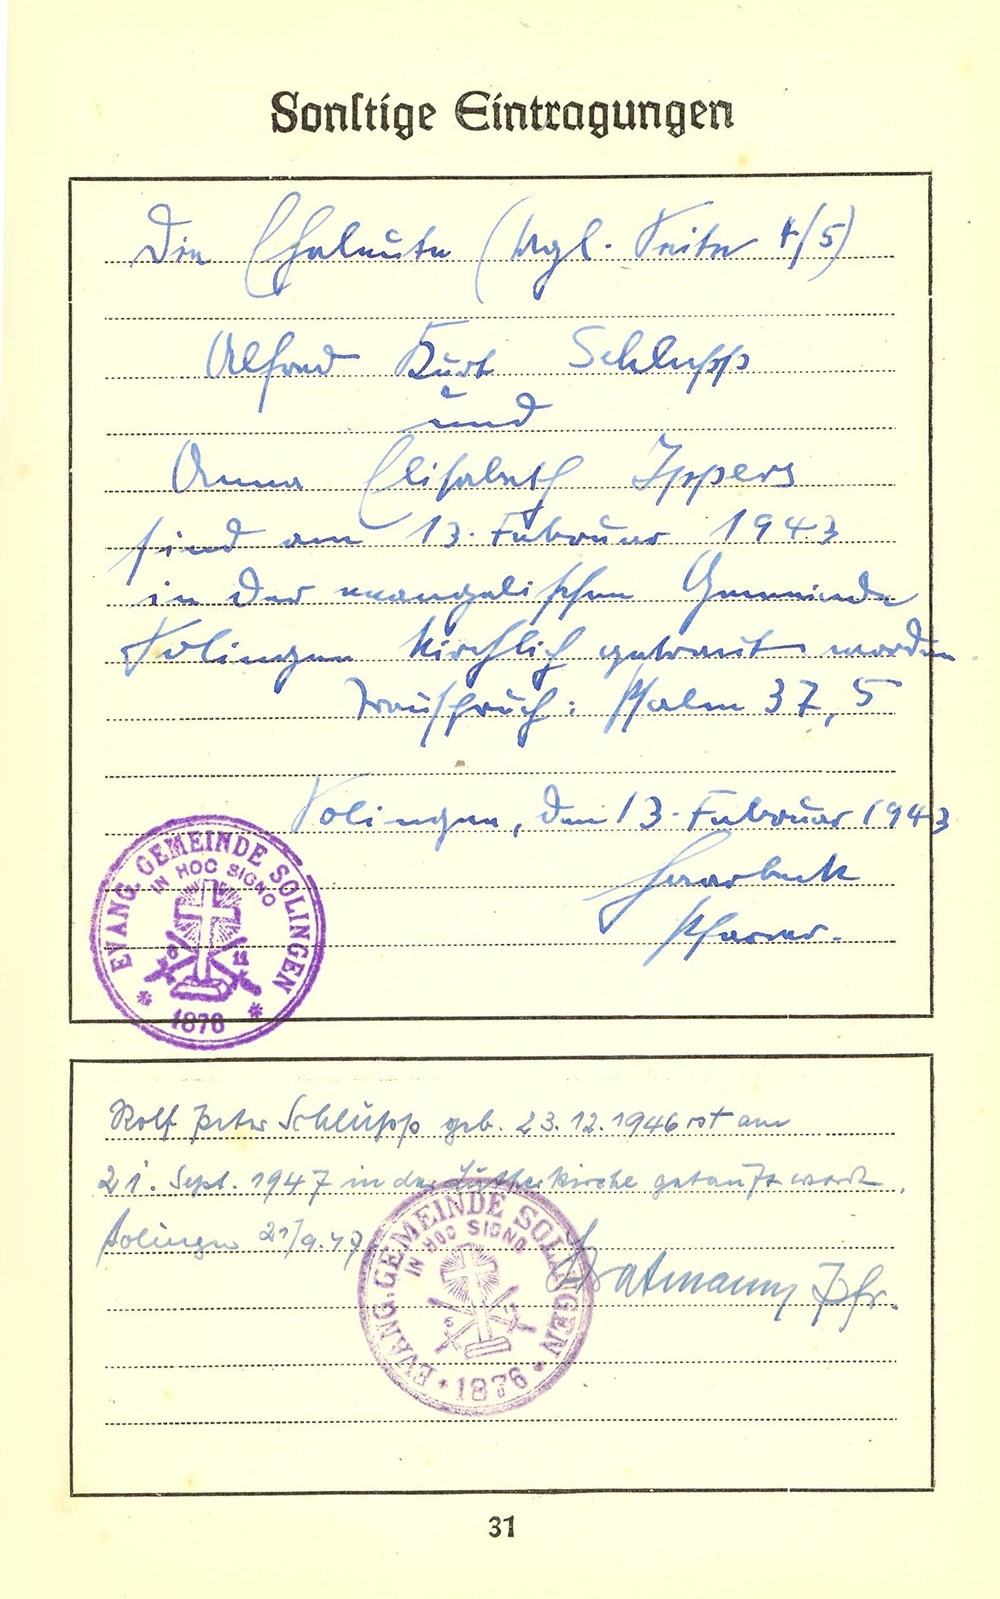 Sonstige Eintragungen
Die Eheleute (vgl. Seite 4/5)
Alfred Kurt Schlupp
und
Anna Elisabeth Ippers
sind am 13. Februar 1943
in der evangelischen Gemeinde
Solingen kirchlich getraut worden.
Trauspruch: Psalm 37, 5
Solingen, den 13. Februar 1943
Haarbeck
Pfarrer.
EVANG. GEMEINDE SOLINGEN
IN HOC SIGNO
1876
Rolf Peter Schlüpp geb. 23.12.1946 ist am
21. Sept. 1947 in der Lutherkirche getauft word.
Solingen 21/9.47
Pfr.
EVANG. GEMEINDE SOLINGEN
IN HOC SIGNO
1876
31